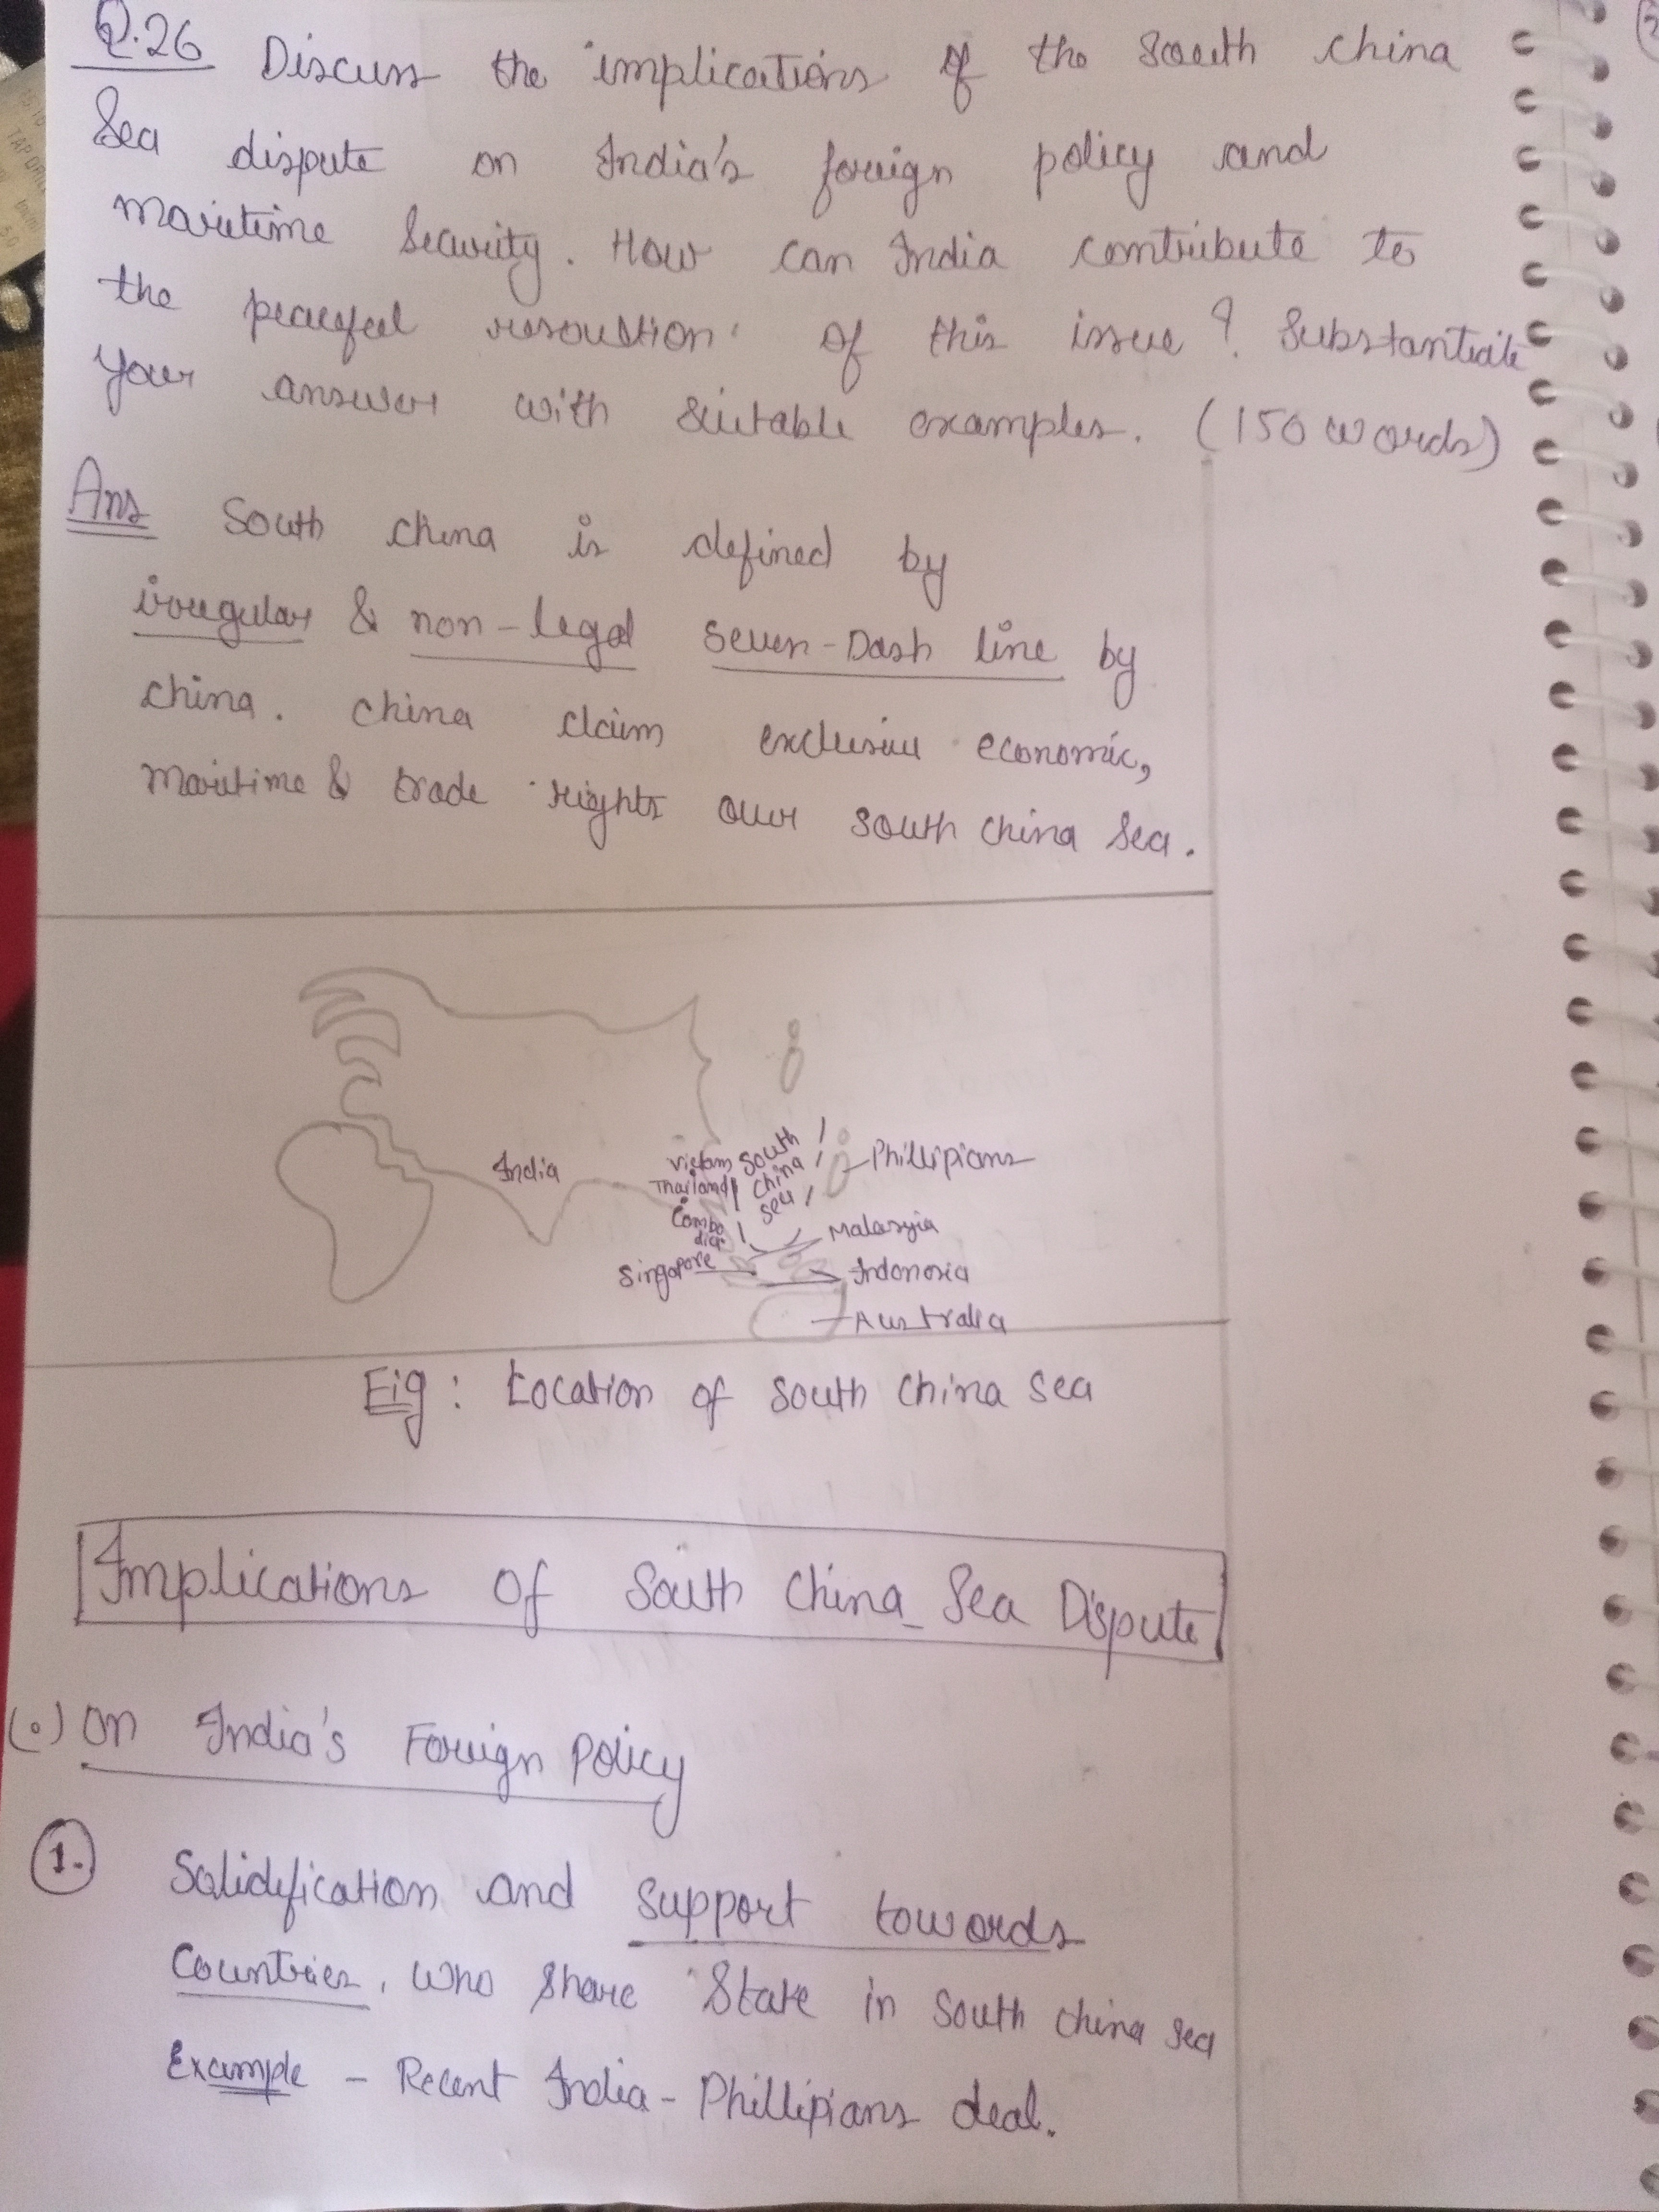 Q.26 Discuss the implications of the South China
Sea dispute on India's foreign policy and
maritime Security. How can India contribute to
the peaceful resoution of this issue? Substantiate
your answer with suitable examples. (150 words)
Ans South China is defined by
irregular & non-legal seven-Dash line by
China. China claim exclusive economic,
Maritime & trade rights over South China Sea.
India
Vietam
Thailand
Combo
dia
Singapore
South
China
Sea
Phillipians
Malasyia
Indonesia
Australia
Fig: Location of South China Sea
Implications Of South China Sea Dispute
(•) On India's Foreign Policy
1. Solidification and support towards
Countries, who share State in South China Sea
Example - Recent India - Phillipians deal.